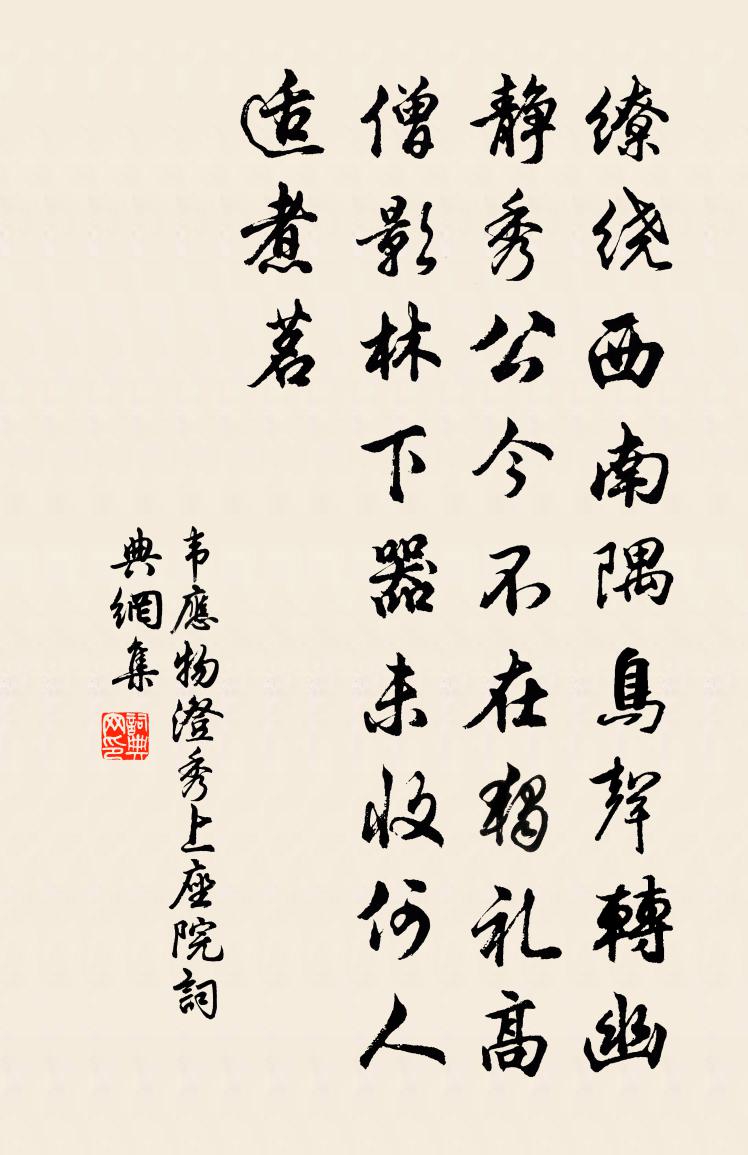 缭绕西南隅鳥聲轉幽
靜秀公今不在獨礼高
僧影林下器未收何人
适煮茗
韦應物澄秀上座院詞
典網集
詞典网印